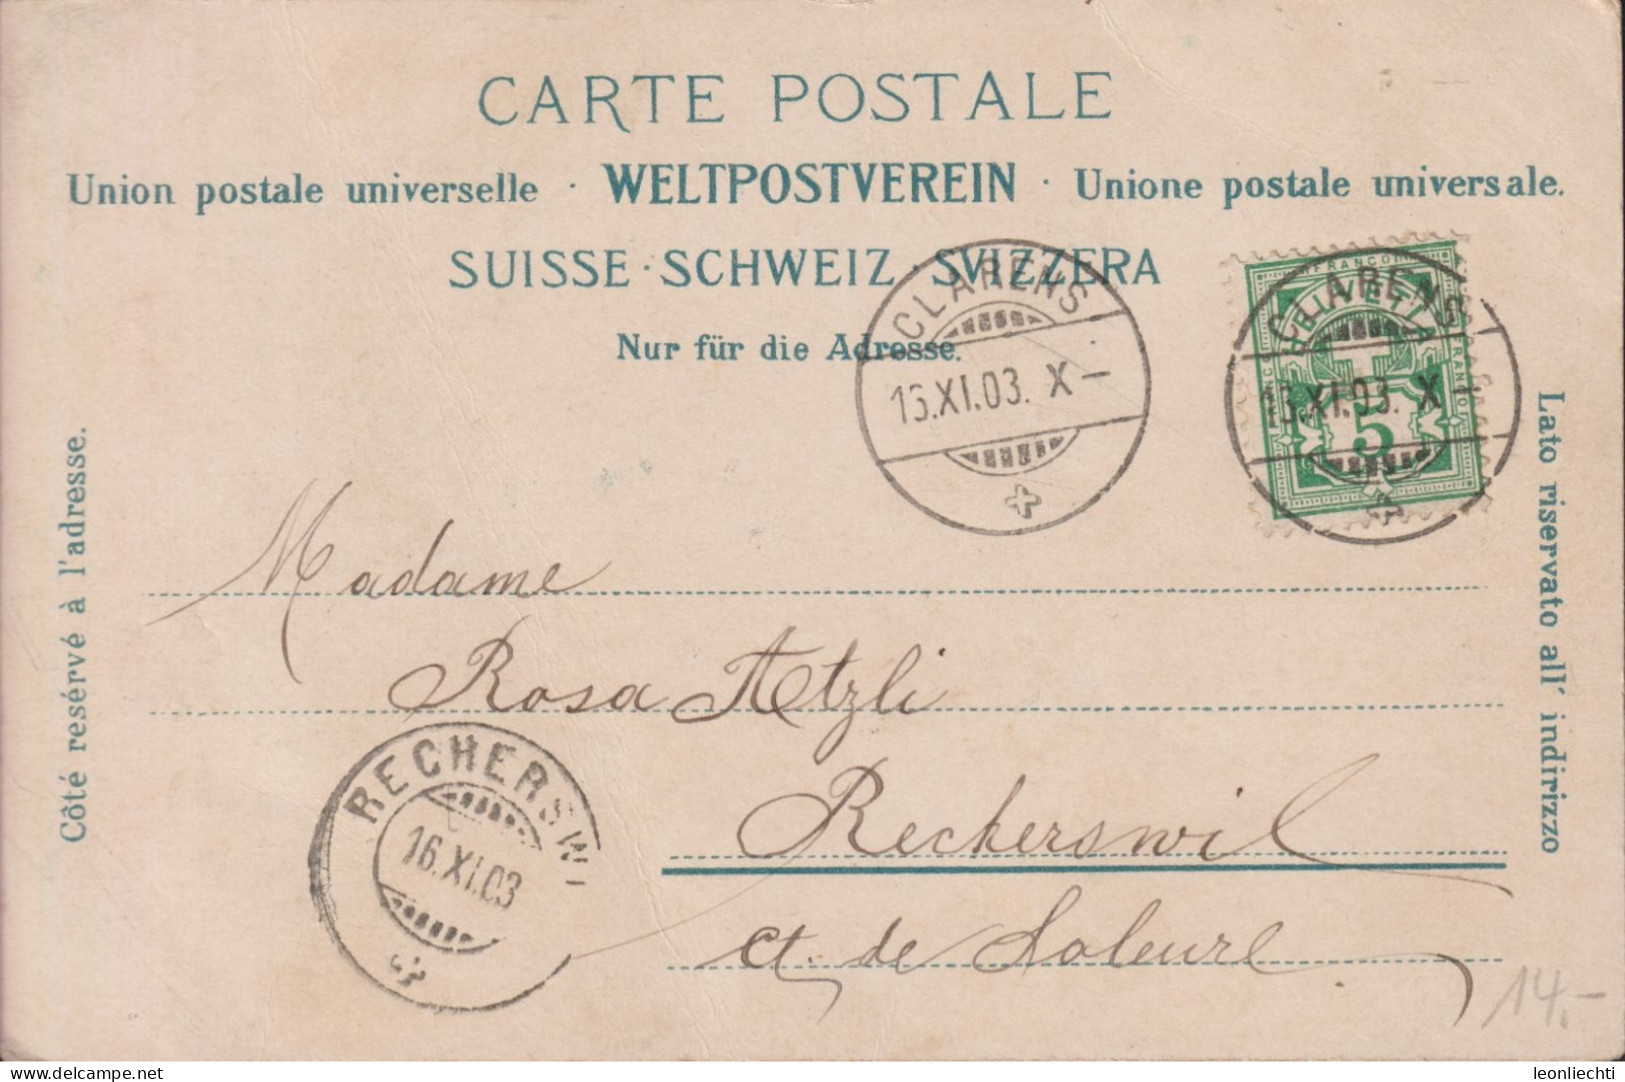 CARTE POSTALE
Union postale universelle · WELTPOSTVEREIN · Unione postale universale.
SUISSE · SCHWEIZ · SVIZZERA
Nur für die Adresse.
CLARENS
13.XI.03. X–
FRANCO
HELVETIA
FRANCO
FRANCO
5
CLARENS
13.XI.03. X–
Côté resérvé à l'adresse.
Lato riservato all' indirizzo
Madame
Rosa Aetzli
Recherswil
ct. de Soleure
RECHERSWI
16.XI.03
14.–
delcampe.net
leonliechti